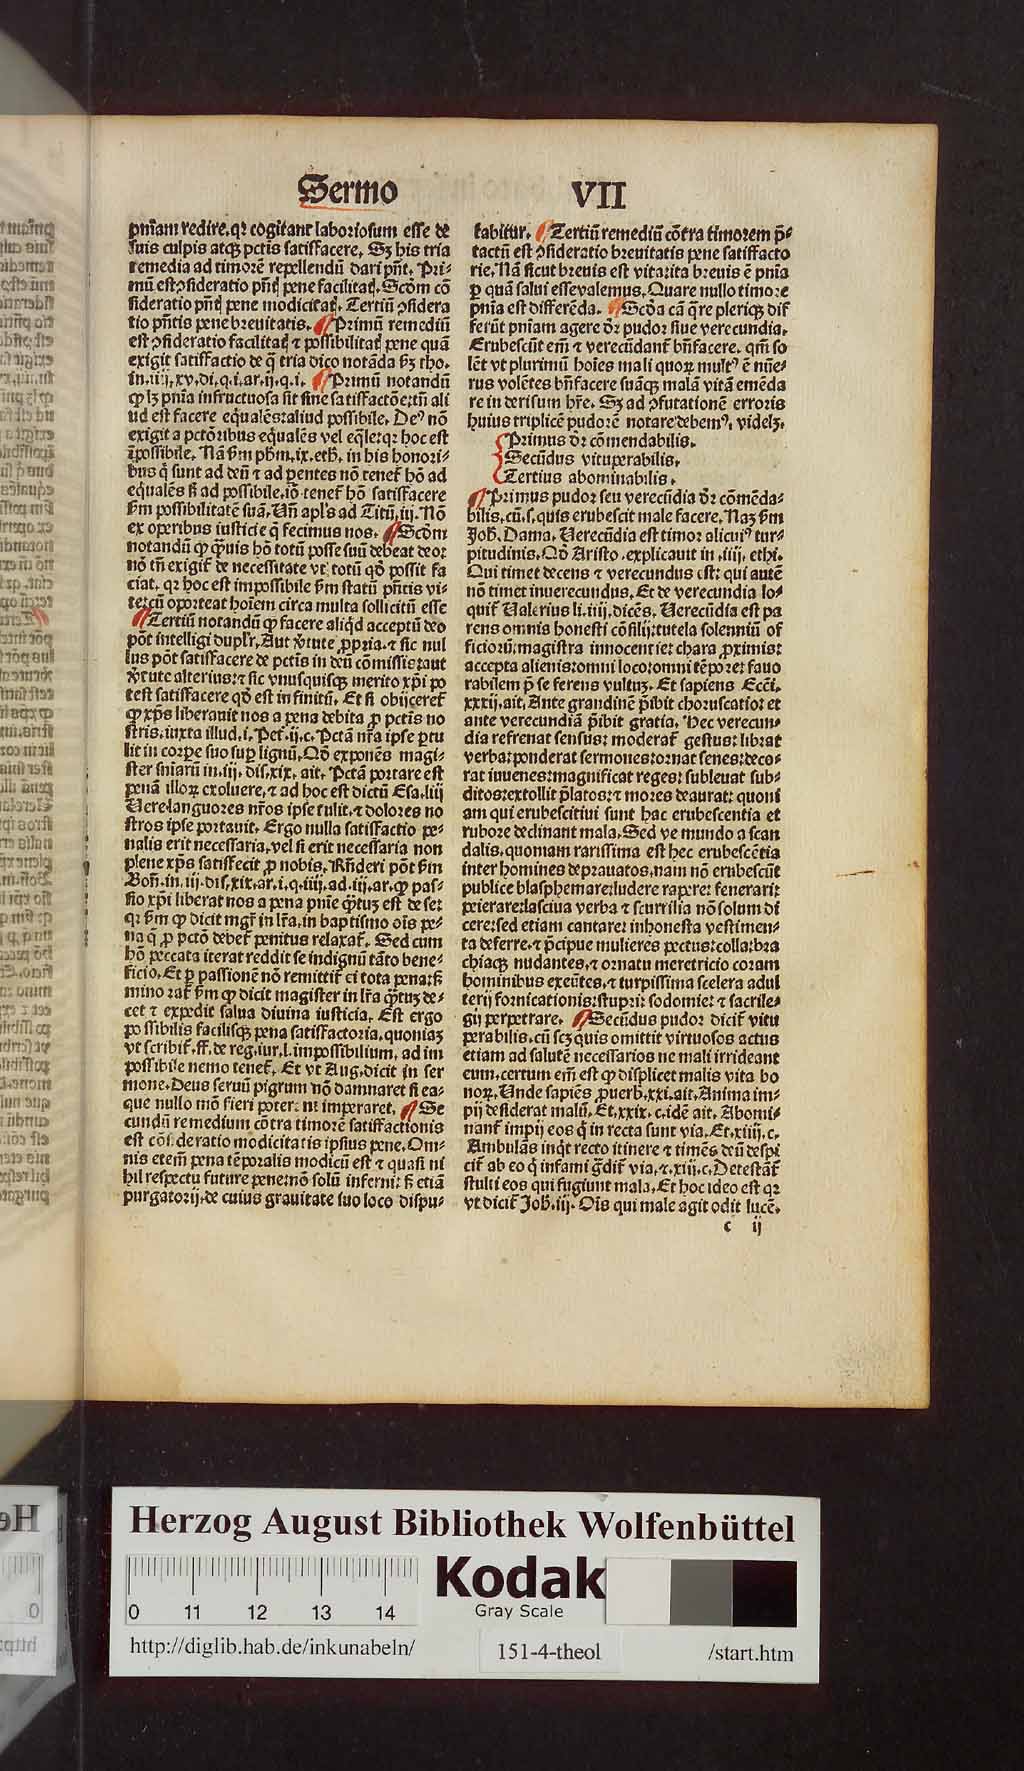 Sermo VII
pn̄iam redire, qꝛ cogitant laboriosum esse de
suis culpis atqꝫ pctis̄ satisfacere. Sꝫ his tria
remedia ad timorē repellendū dari pn̄t. Pri-
mū est ꝯsideratio pn̄tis pene facilitatis. Scd̄m cō
sideratio pn̄tis pene modicitatis. Tertiū ꝯsidera
tio pn̄tis pene breuitatis. Primū remediū
est ꝯsideratio facilitatis ⁊ possibilitatis pene quā
exigit satisfactio de q̄ tria dico notāda ẜm tho.
in.iiij.xv.di.q.i.ar.ij.q.i. Primū notandū
ꝙ lꝫ pn̄ia infructuosa sit sine satisfactōe: tn̄ ali
ud est facere eq̄uales: aliud possibile. Deꝰ nō
exigit a pctōribus equalēs vel eq̄le: qꝛ hoc est
īpossibile. Nā ẜm ph̄m.ix.eth. in his honori-
bus q̄ sunt ad deū ⁊ ad pentes nō tenet̄ hō ad
equalēs sꝫ ad possibile. iō tenet̄ hō satisfacere
ẜm possibilitatē suā. Vn̄ apl̄s ad Titū.iij. Nō
ex operibus iusticie q̄ fecimus nos. Scd̄m
notandū ꝙ q̄uis hō totū posse suū debeat deo:
nō tn̄ exigit̄ de necessitate vt totū qd̄ possit fa
ciat, qꝛ hoc est impossibile ẜm statū pn̄tis vi-
te: cū oporteat hoīem circa multa sollicitū esse
Tertiū notandū ꝙ facere aliqd̄ acceptū deo
pōt intelligi duplr̄. Aut v̓tute ꝓpria. ⁊ sic nul
lus pōt satisfacere de pctis̄ in deū cōmissis: aut
v̓tute alterius: ⁊ sic vnusquisqꝫ merito xp̄i po
test satisfacere qd̄ est infinitū. Et si obijceret̄
ꝙ xp̄s liberauit nos a pena debita ꝓ pctis̄ no
stris, iuxta illud.i. Pet̄.ij.c. Pctā nr̄a ipse ptu
lit in corpe suo sup lignū. Qd̄ exponēs magi-
ster sn̄iarū in.iij.dis.xix. ait. Pctā portare est
penā illoꝝ exoluere, ⁊ ad hoc est dictū Esa.liij
Vere languores nr̄os ipse tulit, ⁊ dolores no
stros ipse portauit. Ergo nulla satisfactio pe-
nalis erit necessaria, vel si erit necessaria non
plene xp̄s satisfecit ꝓ nobis. Rn̄deri pōt ẜm
Boñ.in.iij.dis.xix.ar.i.q.iiij.ad.iij.ar.ꝙ pas-
sio xp̄i liberat nos a pena pn̄ie q̄tuꝫ est de se:
qꝛ ẜm ꝙ dicit mgr̄ in lr̄a, in baptismo oīs pe-
na q̄ ꝓ pctō debet̄ penitus relaxat̄. Sed cum
hō peccata iterat reddit se indignū tāto bene-
ficio. Et ꝑ passionē nō remittit̄ ei tota pena: sꝫ
minorat̄ ẜm ꝙ dicit magister in lr̄a q̄tuꝫ de-
cet ⁊ expedit salua diuina iusticia. Est ergo
possibilis facilisqꝫ pena satisfactoria, quoniaꝫ
vt scribit̄.ff.de reg.iur.l.impossibilium, ad im
possibile nemo tenet̄. Et vt Aug. dicit in ser
mone. Deus seruū pigrum nō damnaret si ea-
que nullo mō fieri poterāt imperaret. Se
cundū remedium cōtra timorē satisfactionis
est cōsideratio modicitatis ipsius pene. Om-
nis etem̄ pena tēporalis modicū est ⁊ quasi ni
hil respectu future pene: nō solū inferni: sꝫ etiā
purgatorij, de cuius grauitate suo loco dispu-
tabitur. Tertiū remediū cōtra timorem p̄-
tactū est ꝯsideratio breuitatis pene satisfacto
rie. Nā sicut breuis est vita: ita breuis ē pn̄ia
ꝑ quā salui esse valemus. Quare nullo timore
pn̄ia est differēda. Scd̄a cā q̄re pleriqꝫ dif
ferūt pn̄iam agere dr̄ pudor siue verecundia.
Erubescūt em̄ ⁊ verecūdant̄ bn̄facere. qm̄ so
lēt vt plurimū hoīes mali quoꝝ multꝰ ē nūe-
rus volētes bn̄facere suāqꝫ malā vitā emēda
re in derisum hr̄e. Sꝫ ad ꝯfutationē erroris
huius triplicē pudorē notare debemꝰ, videlꝫ.
Primus dr̄ cōmendabilis.
Secūdus vituperabilis.
Tertius abominabilis.
Primus pudor seu verecūdia dr̄ cōmēda-
bilis, cū.s. quis erubescit male facere. Naꝫ ẜm
Joh̄. Dama. Verecūdia est timor alicuiꝰ tur-
pitudinis. Qd̄ Aristo. explicauit in.iiij. ethi.
Qui timet decens ⁊ verecundus est: qui autē
nō timet inuerecundus. Et de verecundia lo-
quit̄ Valerius li.iiij.dicēs. Verecūdia est pa
rens omnis honesti cōsilij: tutela solenniū of
ficiorū: magistra innocentie: chara ꝓximis:
accepta alienis: omni loco: omni tēpore: fauo
rabilem p̄ se ferens vultuꝫ. Et sapiens Ecci.
xxxij. ait. Ante grandinē p̄ibit choruscatio: et
ante verecundiā p̄ibit gratia. Hec verecun-
dia refrenat sensus: moderat̄ gestus: librat
verba: ponderat sermones: ornat senes: deco-
rat iuuenes: magnificat reges: subleuat sub-
ditos: extollit p̄latos: ⁊ mores deaurat: quoni
am qui erubescitiui sunt hac erubescentia et
rubore declinant mala. Sed ve mundo a scan
dalis, quoniam rarissima est hec erubescētia
inter homines deprauatos, nam nō erubescūt
publice blasphemare: ludere rapere: fenerari:
peierare: lasciua verba ⁊ scurrilia nō solum di
cere: sed etiam cantare: inhonesta vestimen-
ta deferre. ⁊ p̄cipue mulieres pectus: colla: bra
chiaqꝫ nudantes, ⁊ ornatu meretricio coram
hominibus exeūtes, ⁊ turpissima scelera adul
terij fornicationis: stupri: sodomie: ⁊ sacrile-
gij perpetrare. Secūdus pudor dicit̄ vitu
perabilis, cū scꝫ quis omittit virtuosos actus
etiam ad salutē necessarios ne mali irrideant
eum, certum em̄ est ꝙ displicet malis vita bo
noꝝ. Vnde sapiēs ꝓuerb̄.xxi.ait. Anima im-
pij desiderat malū. Et.xxix.c.idē ait. Abomi-
nant̄ impij eos q̄ in recta sunt via. Et.xiiij.c.
Ambulās inqt̄ recto itinere ⁊ timēs deū despi
cit̄ ab eo q̄ infami g̓dit̄ via, ⁊.xiij.c. Detestāt̄
stulti eos qui fugiunt mala. Et hoc ideo est qꝛ
vt dicit̄ Joh̄.iij. Oīs qui male agit odit lucē.
c ij
Herzog August Bibliothek Wolfenbüttel
Kodak
Gray Scale
0 11 12 13 14
http://diglib.hab.de/inkunabeln/ 151-4-theol /start.htm